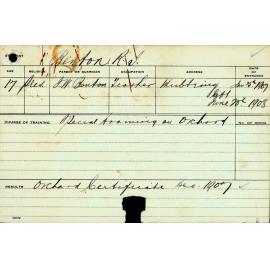 Benton R. J.
AGE RELIGION PARENT OR GUARDIAN OCCUPATION ADDRESS DATE OF ENTRANCE
17 Pres J. W. Benton Teacher Jan 1907
Sept
June 20th 1908
COURSE OF TRAINING Special training on Orchard NO. OF MONTHS
RESULTS Orchard Certificate Dec. 1907